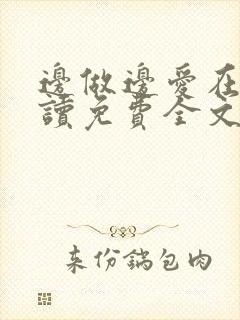 邊做邊愛在
讀免費全文
来份鍋包肉